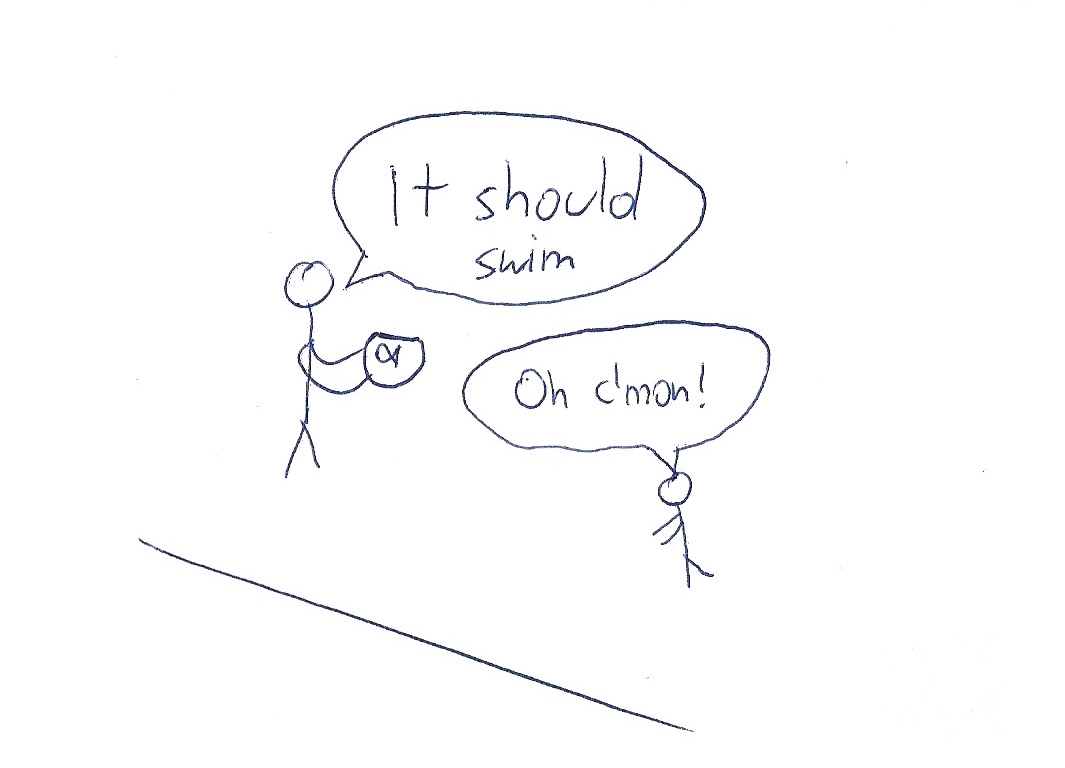 It should
swim
Oh c'mon!